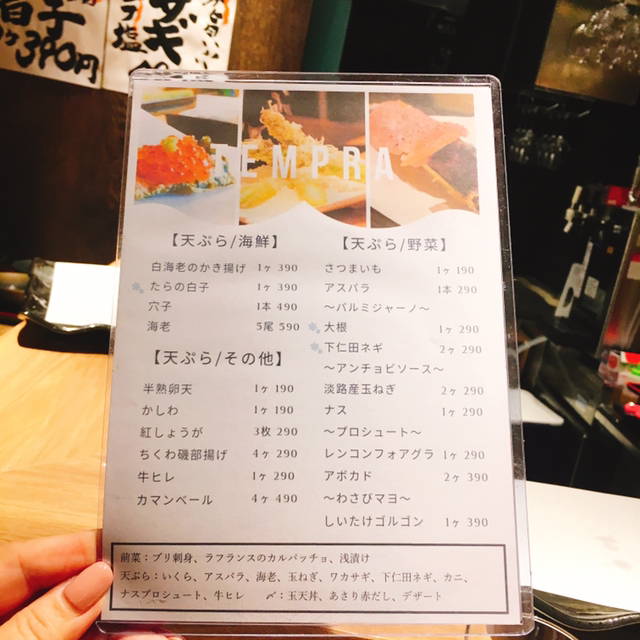 390円
TEMPRA
【天ぷら/海鮮】
白海老のかき揚げ 1ヶ 390
たらの白子 1ヶ 390
穴子 1本 490
海老 5尾 590
【天ぷら/その他】
半熟卵天 1ヶ 190
かしわ 1ヶ 190
紅しょうが 3枚 290
ちくわ磯部揚げ 4ヶ 290
牛ヒレ 1ヶ 290
カマンベール 4ヶ 490
【天ぷら/野菜】
さつまいも 1ヶ 190
アスパラ 1本 290
～パルミジャーノ～
大根 1ヶ 290
下仁田ネギ 2ヶ 290
～アンチョビソース～
淡路産玉ねぎ 2ヶ 290
ナス 1ヶ 290
～プロシュート～
レンコンフォアグラ 1ヶ 490
アボカド 2ヶ 390
～わさびマヨ～
しいたけゴルゴン 1ヶ 390
前菜：ブリ刺身、ラフランスのカルパッチョ、浅漬け
天ぷら：いくら、アスパラ、海老、玉ねぎ、ワカサギ、下仁田ネギ、カニ、
ナスプロシュート、牛ヒレ 〆：玉天丼、あさり赤だし、デザート